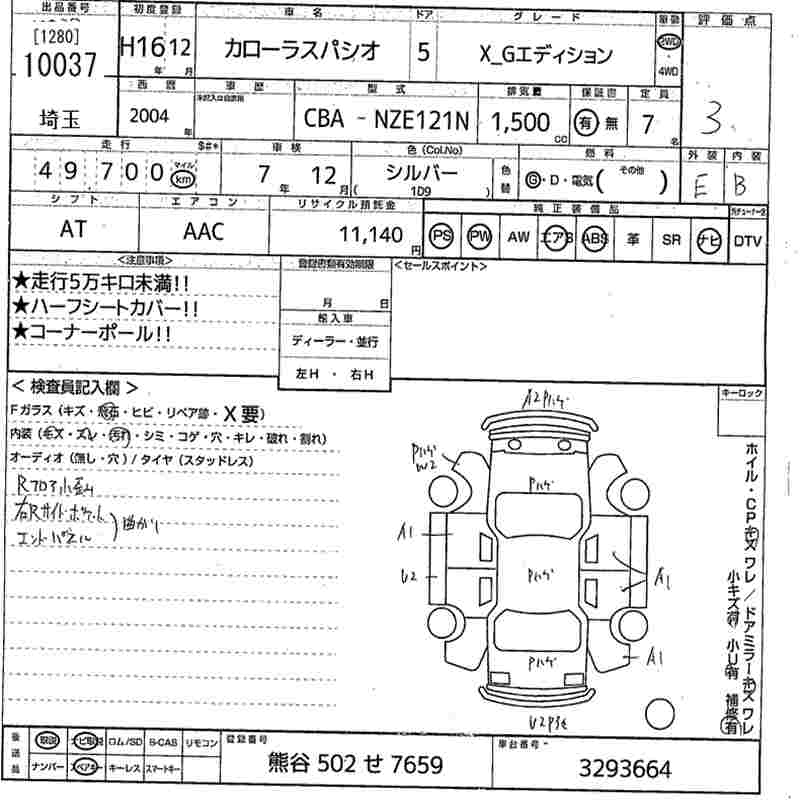 出品番号 初度登録 車名 ドア グレード 評価点
[1280]
10037 H16 12 カローラスパシオ 5 X_Gエディション 2WD
年 月 4WD
西暦 車歴 型式 排気量 保証書 定員
埼玉 2004 年 CBA - NZE121N 1,500 cc 有 無 7 名 3
走行 $#* 車検 色(Col.No) 燃料 外装 内装
49700 マイル km 7年 12月 シルバー 色替 G・D・電気( その他 ) E B
( 1D9 )
シフト エアコン リサイクル預託金 純正装備品
AT AAC 11,140円 PS PW AW エアB ABS 革 SR ナビ DTV
<注意事項> 登録書類有効期限 <セールスポイント>
★走行5万キロ未満!!
★ハーフシートカバー!! 月 日
★コーナーポール!! 輸入車
ディーラー・並行
左H ・ 右H
< 検査員記入欄 > キーロック
Fガラス(キズ・飛石・ヒビ・リペア跡・X要)
内装(・汚れ・シミ・コゲ・穴・キレ・破れ・割れ)
オーディオ(無し・穴)/タイヤ(スタッドレス)
右Rサイドポケット
エンドパネル
曲がり
A2Pハゲ
Pハゲ
W2
Pハゲ
A1
U2
Pハゲ
A1
Pハゲ
A1
ホイル・CPキズ ワレ/ドアミラーキズ ワレ
小キズ有 小U有 補修有
後送品 取説 ナビ取説 ロム/SD B-CAS リモコン 登録番号 車台番号
ナンバー スペアキー キーレス スマートキー 熊谷 502 せ 7659 3293664